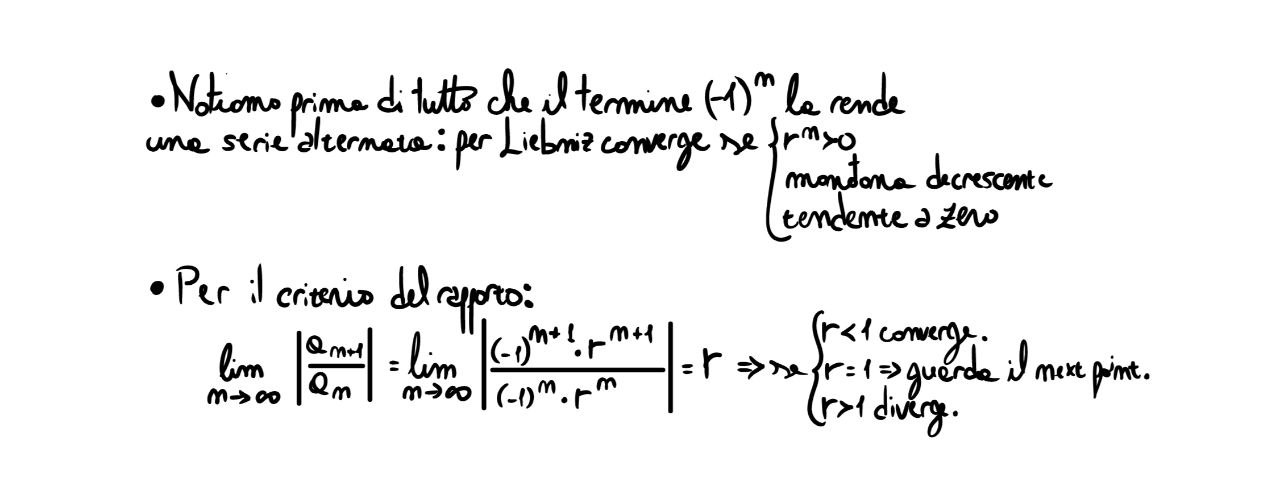 • Notiamo prima di tutto che il termine (-1)^n la rende
una serie alternata: per Liebniz converge se { r^n>0
monotona decrescente
tendente a zero
• Per il criterio del rapporto:
lim_{n→∞} |a_{n+1}/a_n| = lim_{n→∞} |((-1)^{n+1} · r^{n+1})/((-1)^n · r^n)| = r ⇒ se { r<1 converge.
r=1 ⇒ guarda il next point.
r>1 diverge.